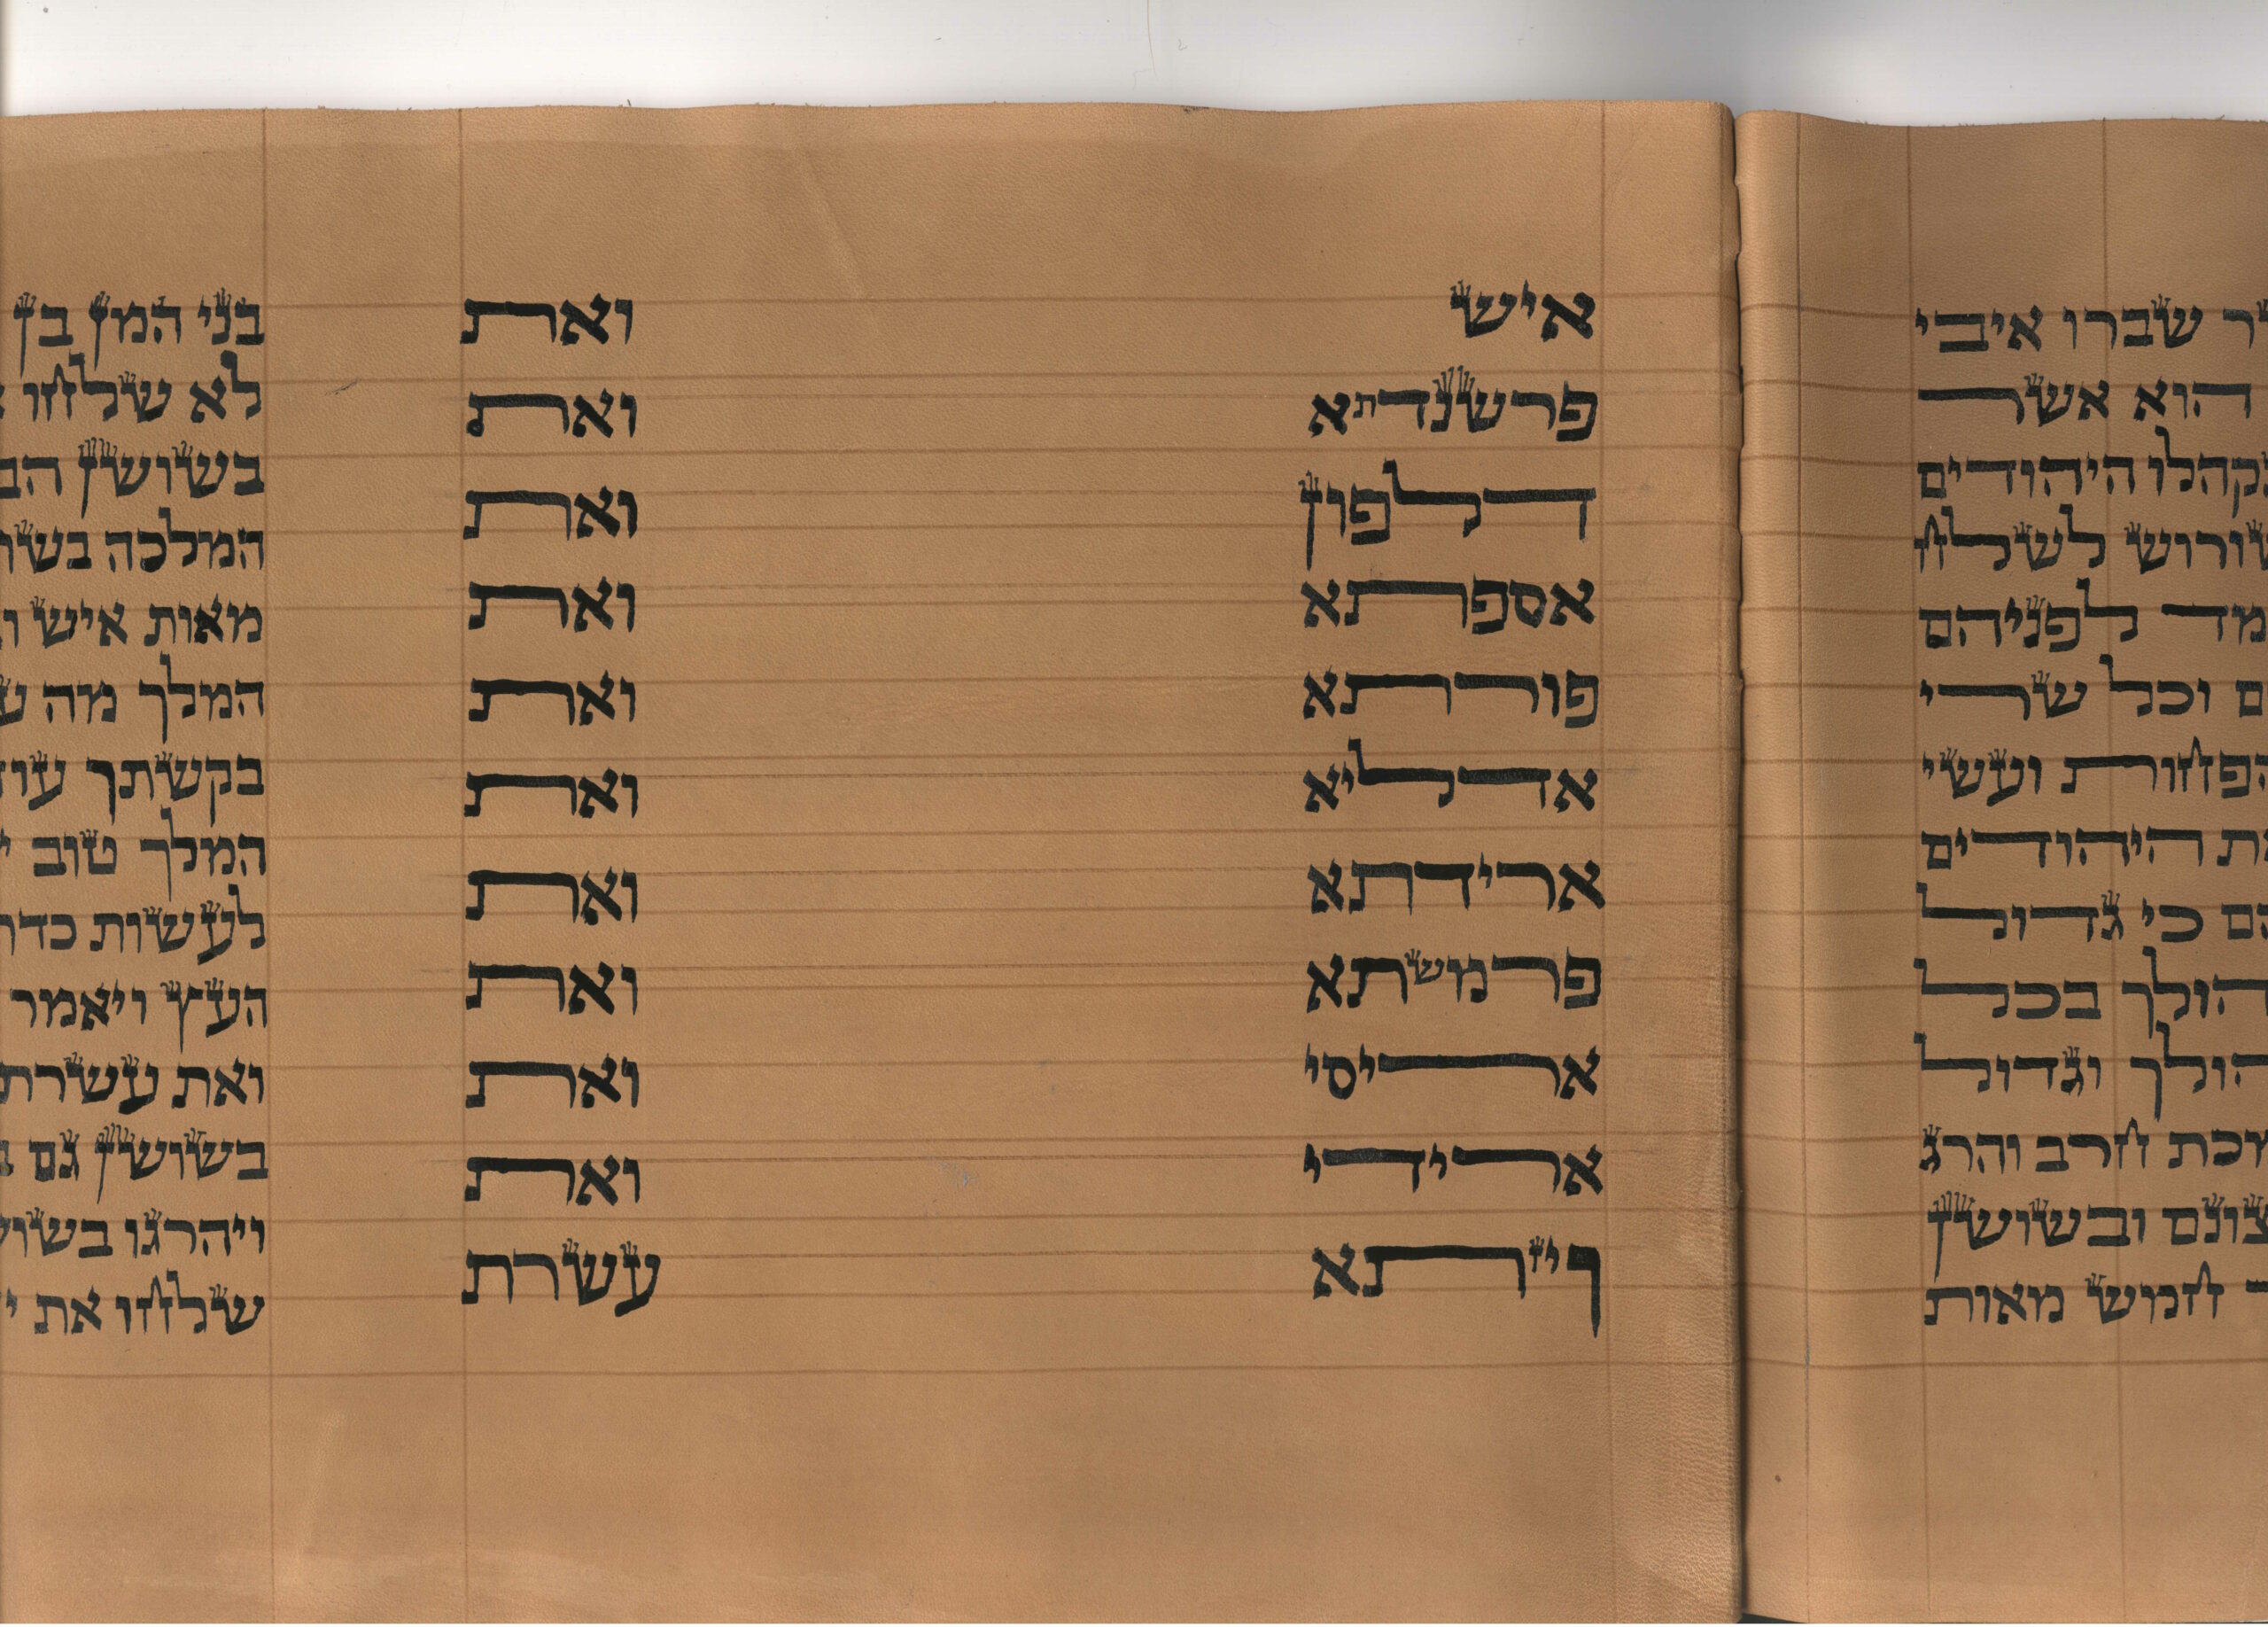 ר שברו איבי
הוא אשר
נקהלו היהודים
שורוש לשלח
מד לפניהם
ם וכל שרי
הפחות ועשי
את היהודים
הם כי גדול
הולך בכל
הולך וגדול
מכת חרב והרג
צונם ובשושן
חמש מאות
איש ואת
פרשנדתא ואת
דלפון ואת
אספתא ואת
פורתא ואת
אדליא ואת
ארידתא ואת
פרמשתא ואת
אריסי ואת
ארידי ואת
ויזתא עשרת
בני המן בן
לא שלחו
בשושן הב
המלכה בשו
מאות איש ו
המלך מה ש
בקשתך עוד
המלך טוב י
לעשות כדת
העץ ויאמר
ואת עשרת
בשושן גם
ויהרגו בשוש
שלחו את י